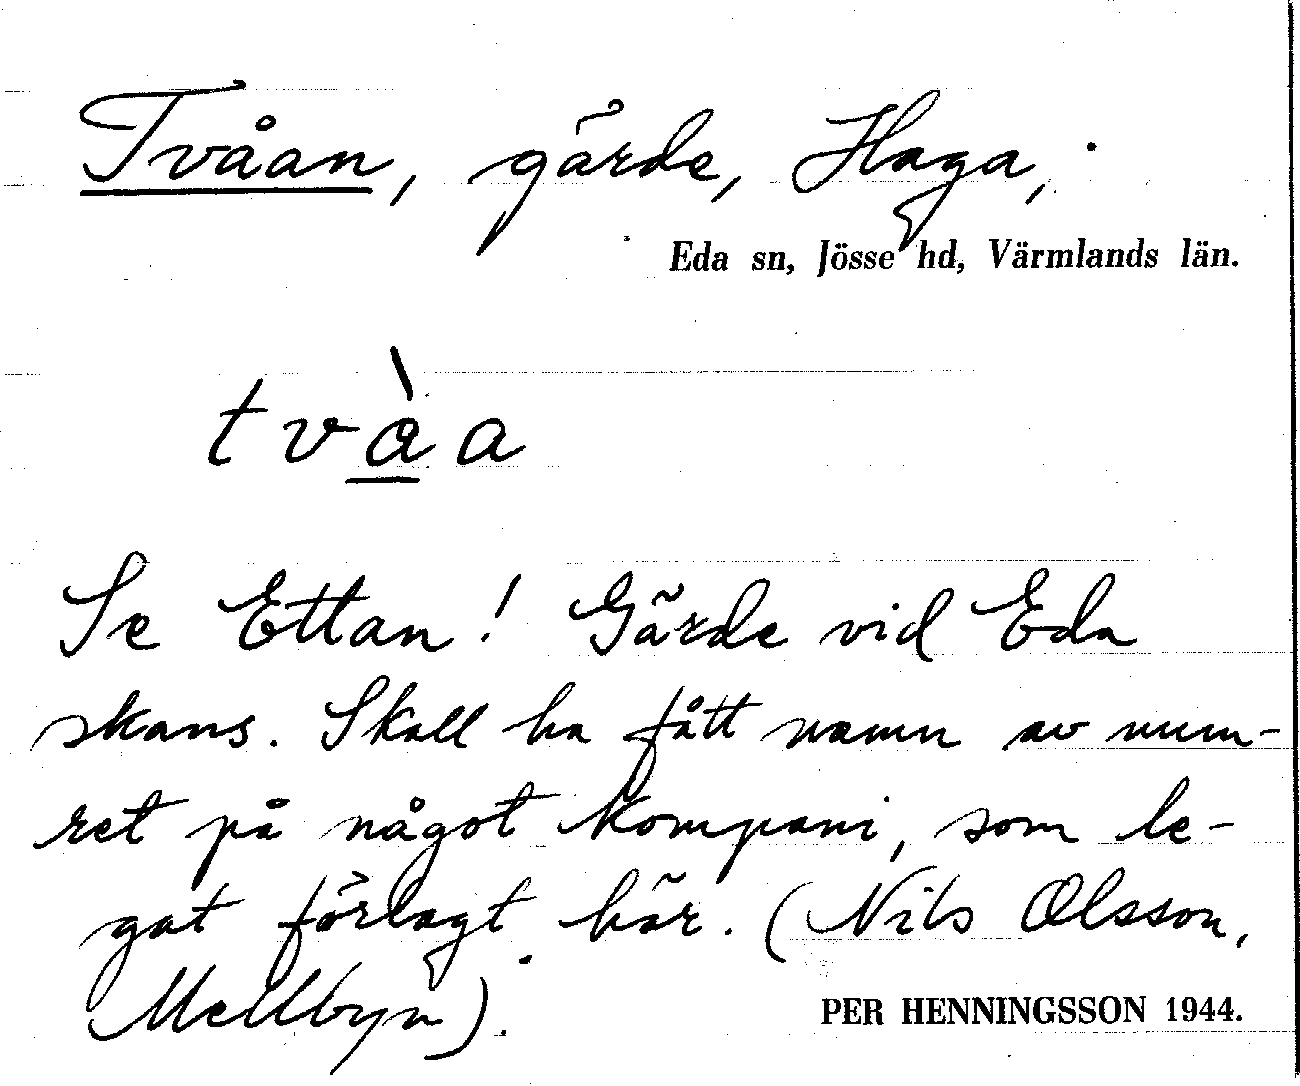 Tvåan, gärde, Haga,
Eda sn, Jösse hd, Värmlands län.
två̀a
Se Ettan! Gärde vid Eda
skans. Skall ha fått namn av num-
ret på något kompani, som le-
gat förlagt här. (Nils Olsson,
Mellbyn).
PER HENNINGSSON 1944.